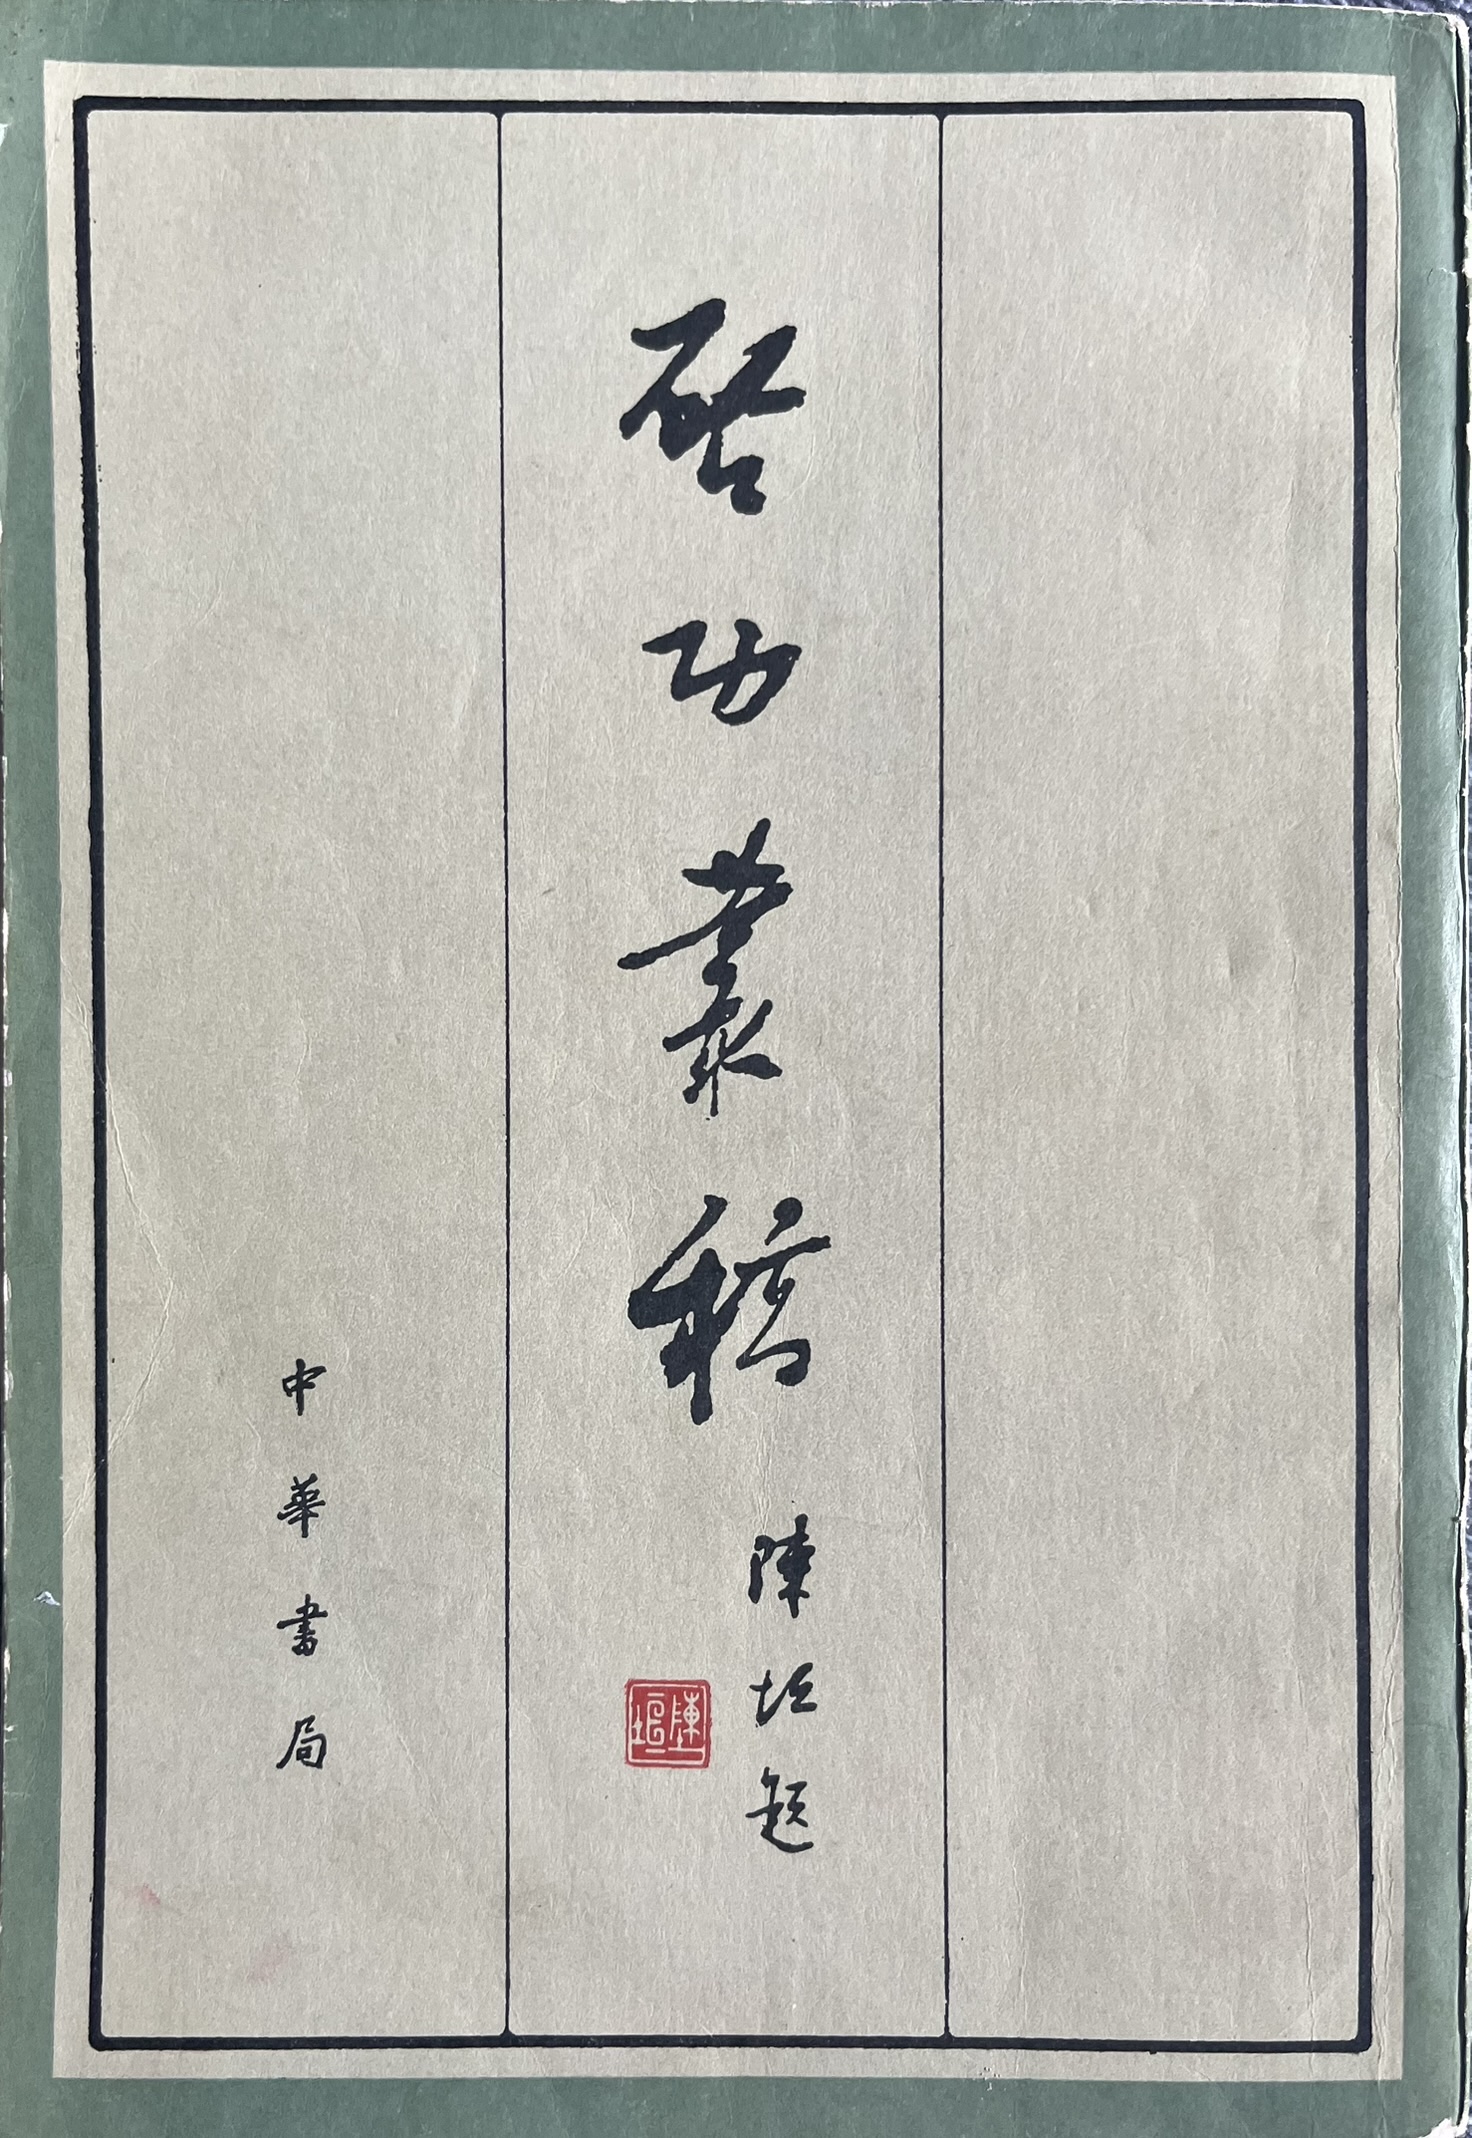 启功叢稿
陳垣題
陳垣
中華書局